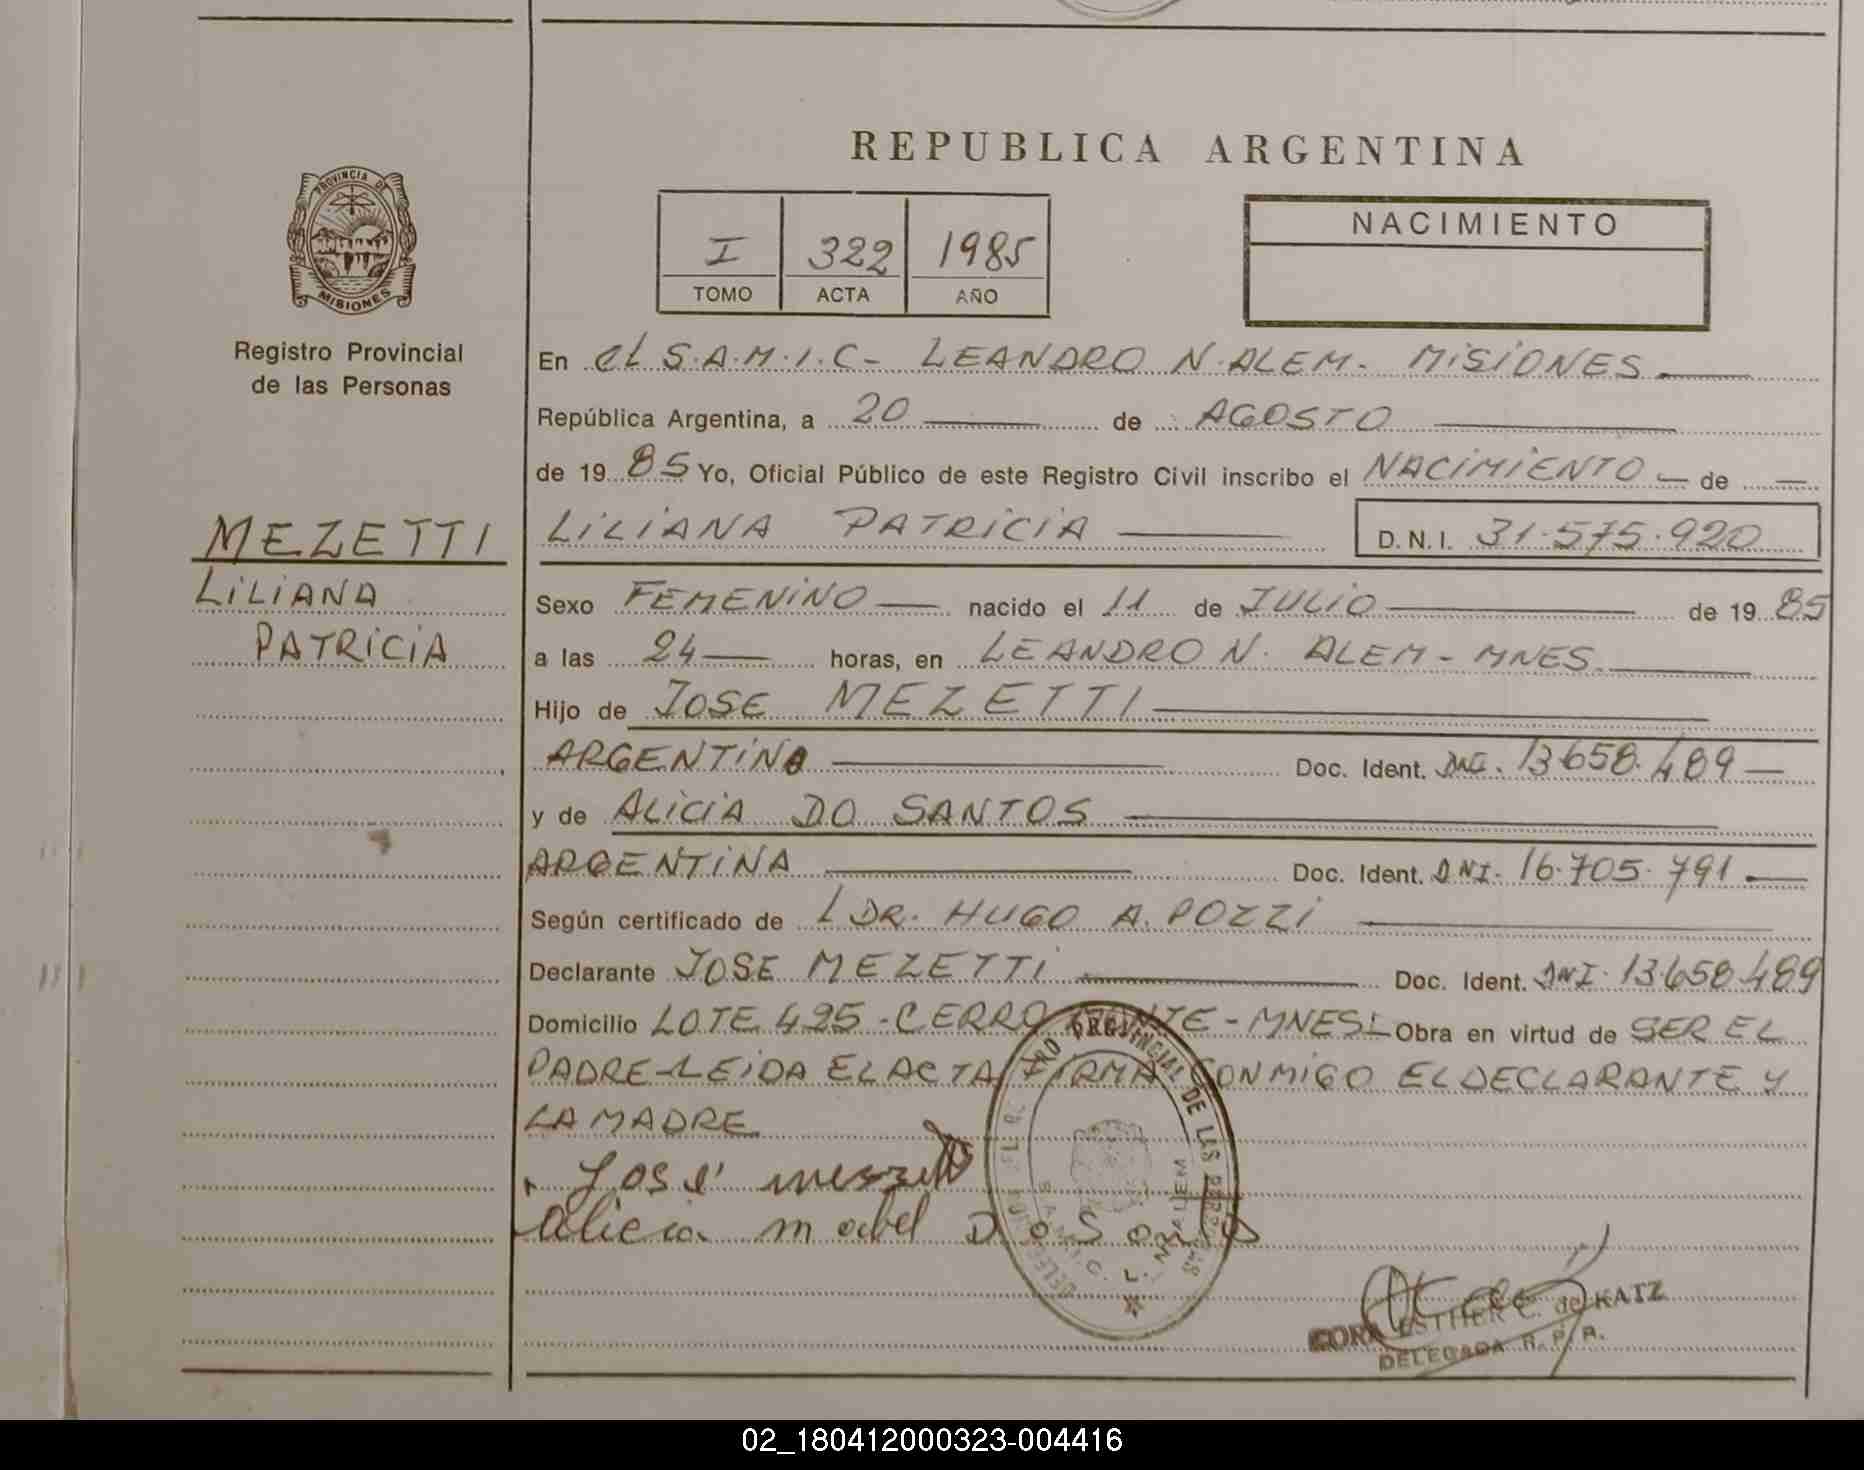 REPUBLICA ARGENTINA
PROVINCIA DE
MISIONES
Registro Provincial
de las Personas
I 322 1985
TOMO ACTA AÑO
NACIMIENTO
En el S.A.M.I.C- LEANDRO N. ALEM- MISIONES
República Argentina, a 20 de AGOSTO
de 1985 Yo, Oficial Público de este Registro Civil inscribo el NACIMIENTO de
MEZETTI
LILIANA
PATRICIA
LILIANA PATRICIA D.N.I. 31.575.920
Sexo FEMENINO nacido el 11 de JULIO de 1985
a las 24 horas, en LEANDRO N. ALEM - MNES.
Hijo de JOSE MEZETTI
ARGENTINO Doc. Ident. DNI. 13.658.489
y de ALICIA DO SANTOS
ARGENTINA Doc. Ident. DNI. 16.705.791
Según certificado de L DR. HUGO A. POZZI
Declarante JOSE MEZETTI Doc. Ident. DNI. 13.658.489
Domicilio LOTE 425 - CERRO - MNES Obra en virtud de SER EL
PADRE - LEIDA EL ACTA FIRMA CONMIGO EL DECLARANTE Y
LA MADRE
José
alicia mabel
PROVINCIAL DE LAS
S.A.M.I.C. L. N. ALEM
CORA ESTHER C. de KATZ
DELEGADA R. P. P.
02_180412000323-004416